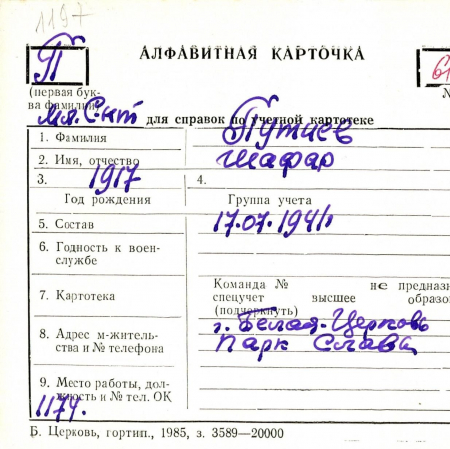 1197
П
АЛФАВИТНАЯ КАРТОЧКА
(первая бук-
ва фамилии)
Мл. С-нт для справок по учетной картотеке
1. Фамилия Путиев
2. Имя, отчество Шафар
3. 1917 4.
Год рождения Группа учета
5. Состав 17.07.1941
6. Годность к воен-
службе
Команда № не предназн
7. Картотека спецучет высшее образо
(подчеркнуть)
8. Адрес м-житель- г. Белая-Церковь
ства и № телефона Парк Слава
9. Место работы, дол-
жность и № тел. ОК
1174.
Б. Церковь, гортип., 1985, з. 3589—20000